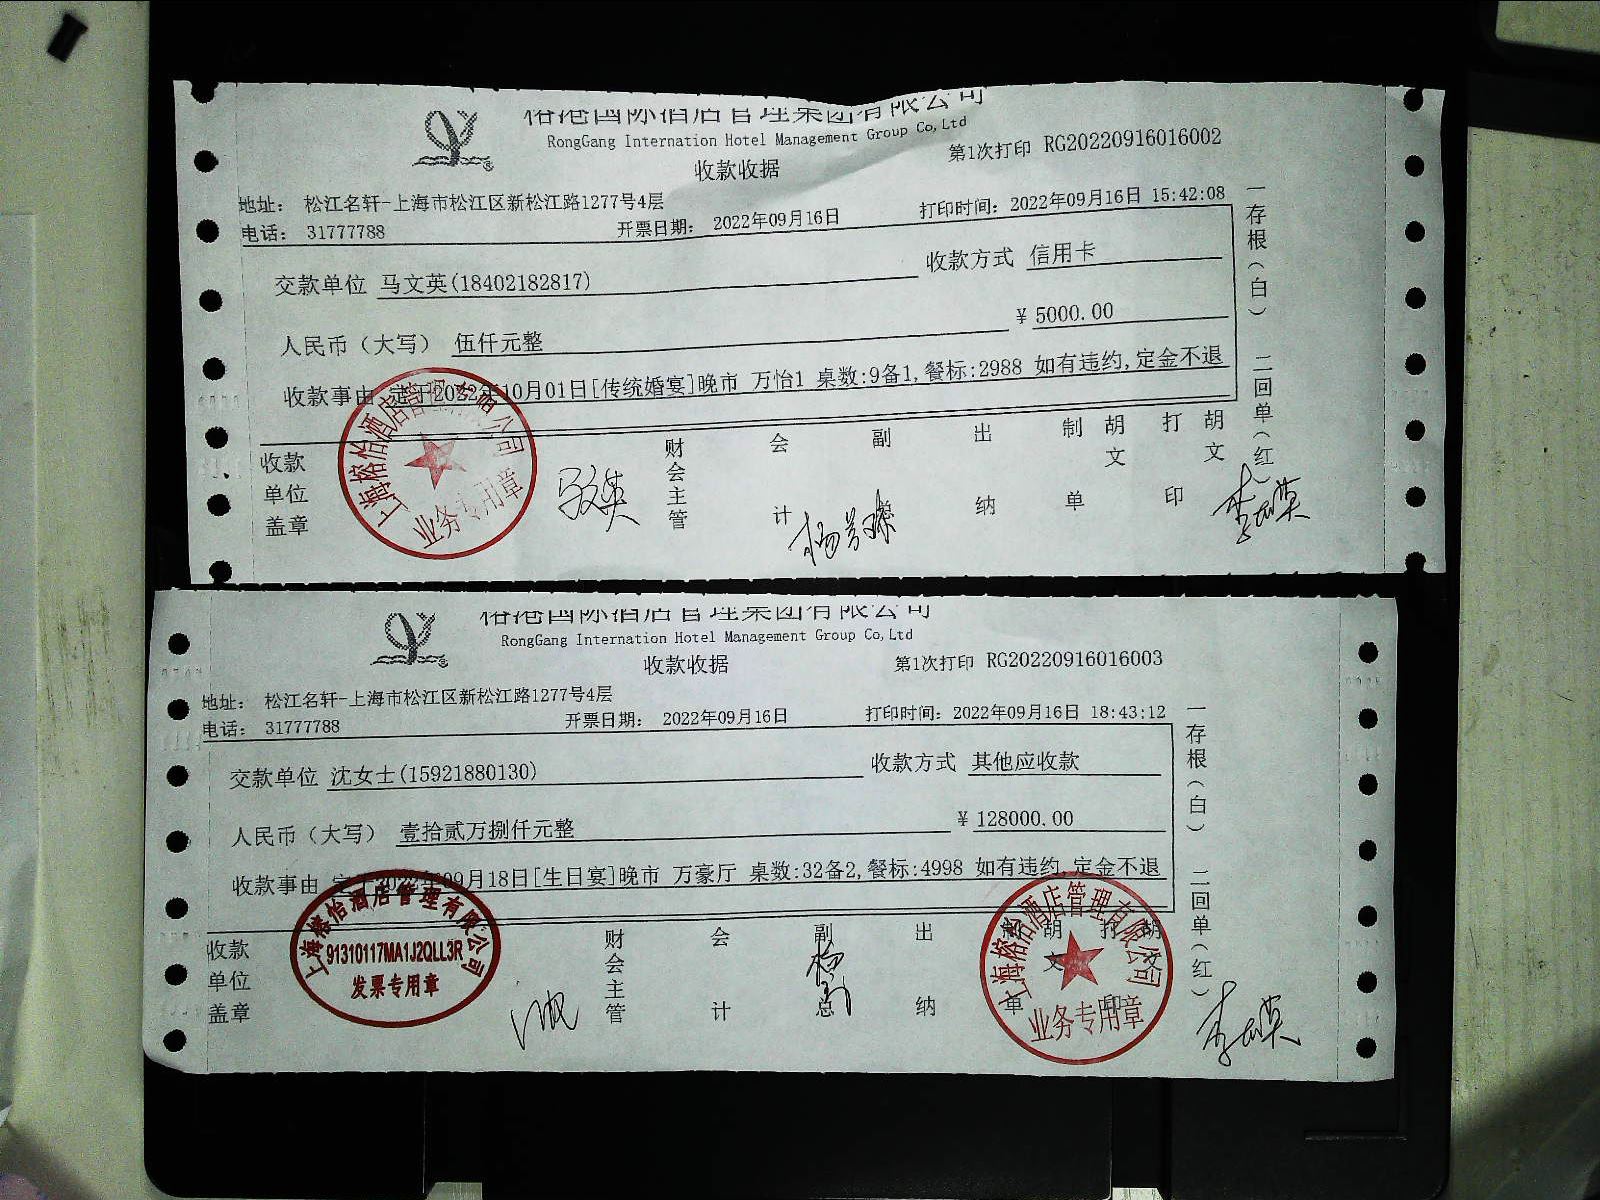 榕港国际酒店管理集团有限公司
RongGang Internation Hotel Management Group Co,Ltd
收款收据
第1次打印 RG20220916016002
地址： 松江名轩-上海市松江区新松江路1277号4层
电话： 31777788
开票日期： 2022年09月16日
打印时间： 2022年09月16日 15:42:08
交款单位 马文英(18402182817)
收款方式 信用卡
人民币（大写） 伍仟元整
¥ 5000.00
收款事由 定于2022年10月01日[传统婚宴]晚市 万怡1 桌数:9备1,餐标:2988 如有违约,定金不退
收款单位盖章
财会主管
会计
副总
出纳
制单
胡文
打印
胡文
一存根（白） 二回单（红）
上海榕怡酒店管理有限公司
业务专用章
马文英
榕港国际酒店管理集团有限公司
RongGang Internation Hotel Management Group Co,Ltd
收款收据
第1次打印 RG20220916016003
地址： 松江名轩-上海市松江区新松江路1277号4层
电话： 31777788
开票日期： 2022年09月16日
打印时间： 2022年09月16日 18:43:12
交款单位 沈女士(15921880130)
收款方式 其他应收款
人民币（大写） 壹拾贰万捌仟元整
¥ 128000.00
收款事由 定于2022年09月18日[生日宴]晚市 万豪厅 桌数:32备2,餐标:4998 如有违约,定金不退
收款单位盖章
财会主管
会计
副总
出纳
制单
胡文
打印
胡文
一存根（白） 二回单（红）
上海榕怡酒店管理有限公司
91310117MA1J2QLL3R
发票专用章
上海榕怡酒店管理有限公司
业务专用章